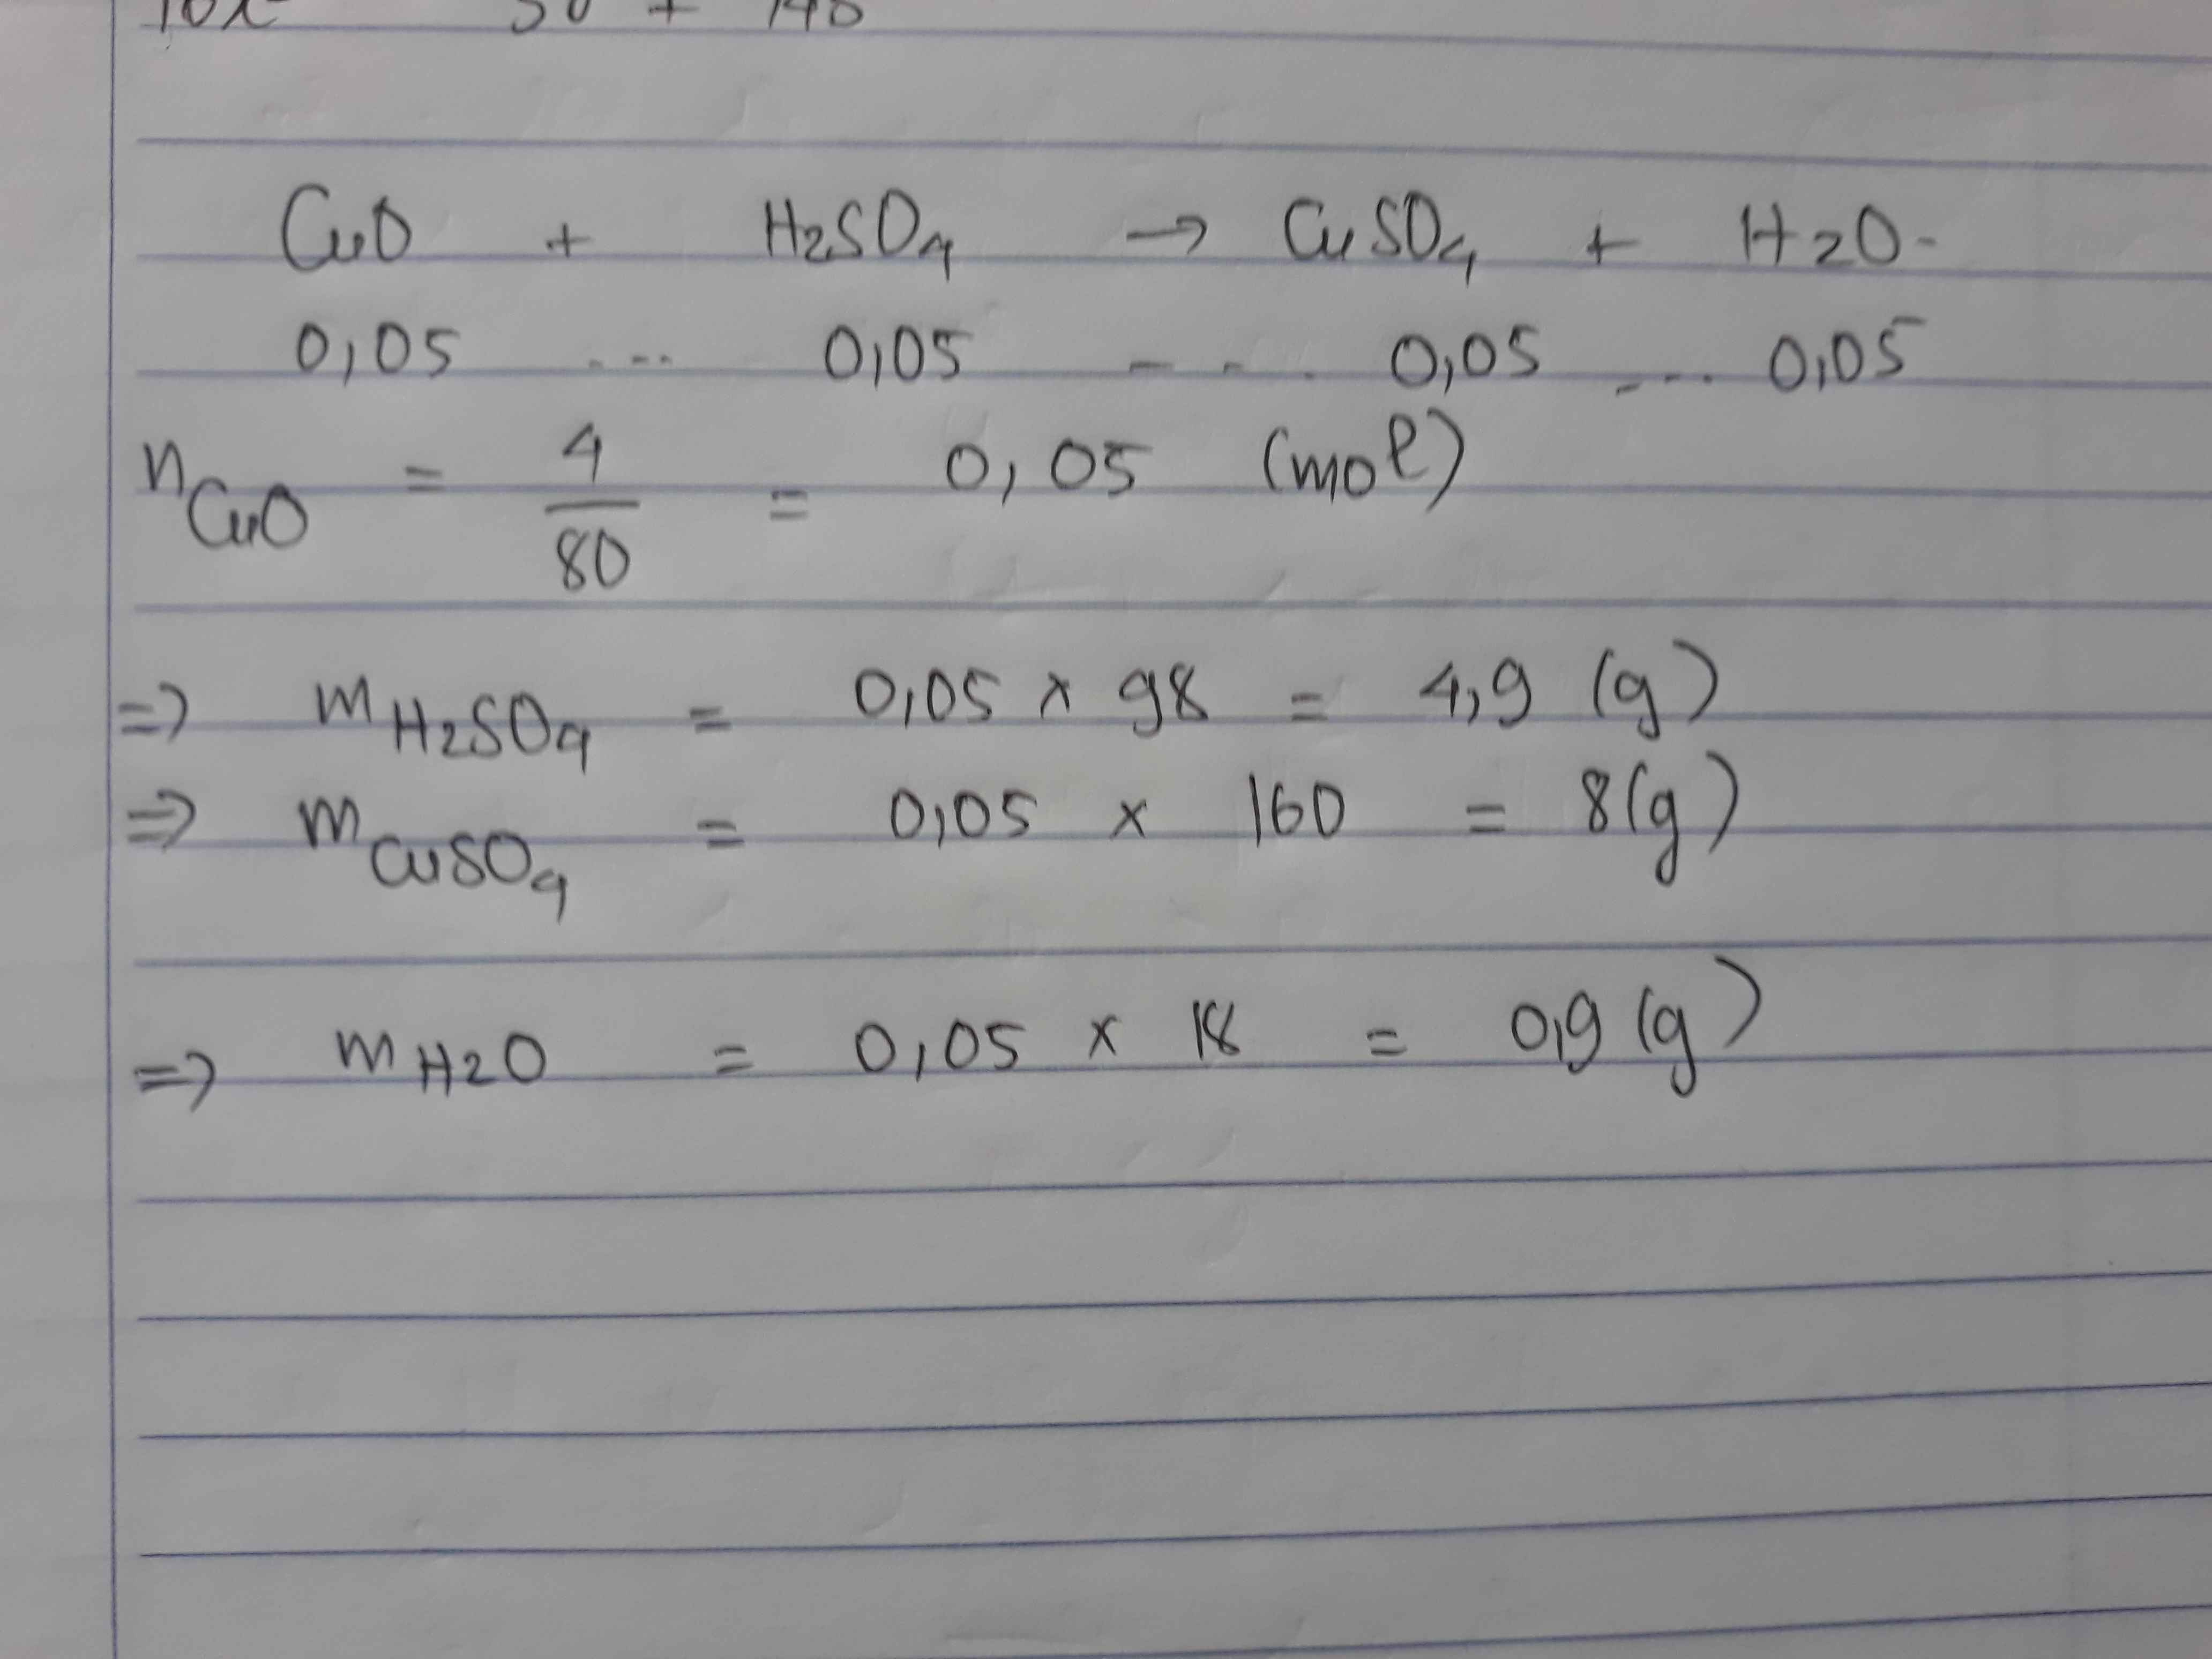 CuO + H2SO4 → CuSO4 + H2O.
0,05 ... 0,05 ... 0,05 ... 0,05
nCuO = 4/80 = 0,05 (mol)
=> mH2SO4 = 0,05 x 98 = 4,9 (g)
=> mCuSO4 = 0,05 x 160 = 8(g)
=> mH2O = 0,05 x 18 = 0,9 (g)